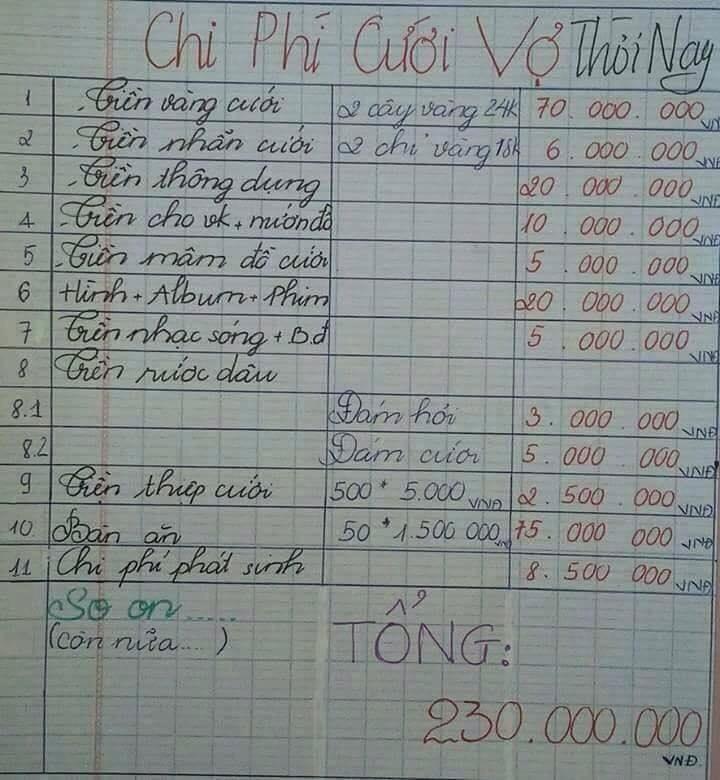 Chi Phí Cưới Vợ Thời Nay
1 Tiền vàng cưới 2 cây vàng 24K 70.000.000 VNĐ
2 Tiền nhẫn cưới 2 chỉ vàng 18k 6.000.000 VNĐ
3 Tiền thông dụng 20.000.000 VNĐ
4 Tiền cho vk + mướn đồ 10.000.000 VNĐ
5 Tiền mâm đồ cưới 5.000.000 VNĐ
6 Hình + Album + Phim 20.000.000 VNĐ
7 Tiền nhạc sống + B.đ 5.000.000 VNĐ
8 Tiền rước dâu
8.1 Đám hỏi 3.000.000 VNĐ
8.2 Đám cưới 5.000.000 VNĐ
9 Tiền thiệp cưới 500 * 5.000 VNĐ 2.500.000 VNĐ
10 Bàn ăn 50 * 1.500 000 VNĐ 75.000.000 VNĐ
11 Chi phí phát sinh 8.500 000 VNĐ
So on.....
(còn nữa....) TỔNG:
230.000.000
VNĐ.